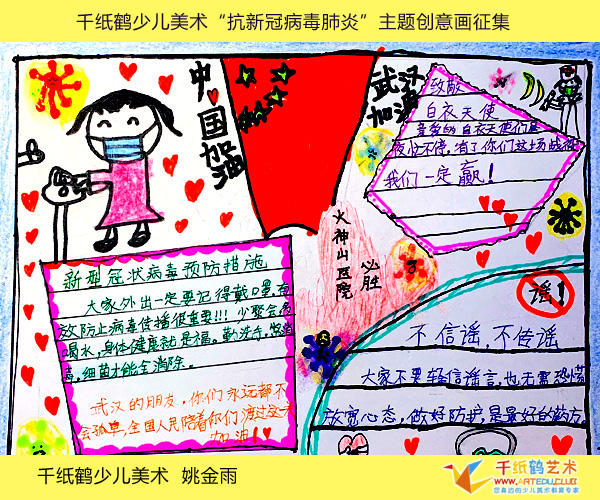 千纸鹤少儿美术“抗新冠病毒肺炎”主题创意画征集
中国加油
武汉
加油
致敬
白衣天使
亲爱的白衣天使们
夜以不停,有了你们这场战
我们一定赢!
火神山医院
必胜
新型冠状病毒预防措施
大家外出一定要记得戴口罩,
放防止病毒传播很重要!!!少聚会
喝水,身体健康就是福。勤洗手,
毒,细菌才能全消除。
武汉的朋友,你们永远都不
会孤单,全国人民陪着你们渡过这
加油!
谣!
不信谣,不传谣
大家不要轻信谣言,也无需恐慌
放宽心态,做好防护,是最好的药方。
千纸鹤少儿美术 姚金雨
千纸鹤艺术
WWW.ARTEDU.CLUB
您身边的少儿美术教育专家